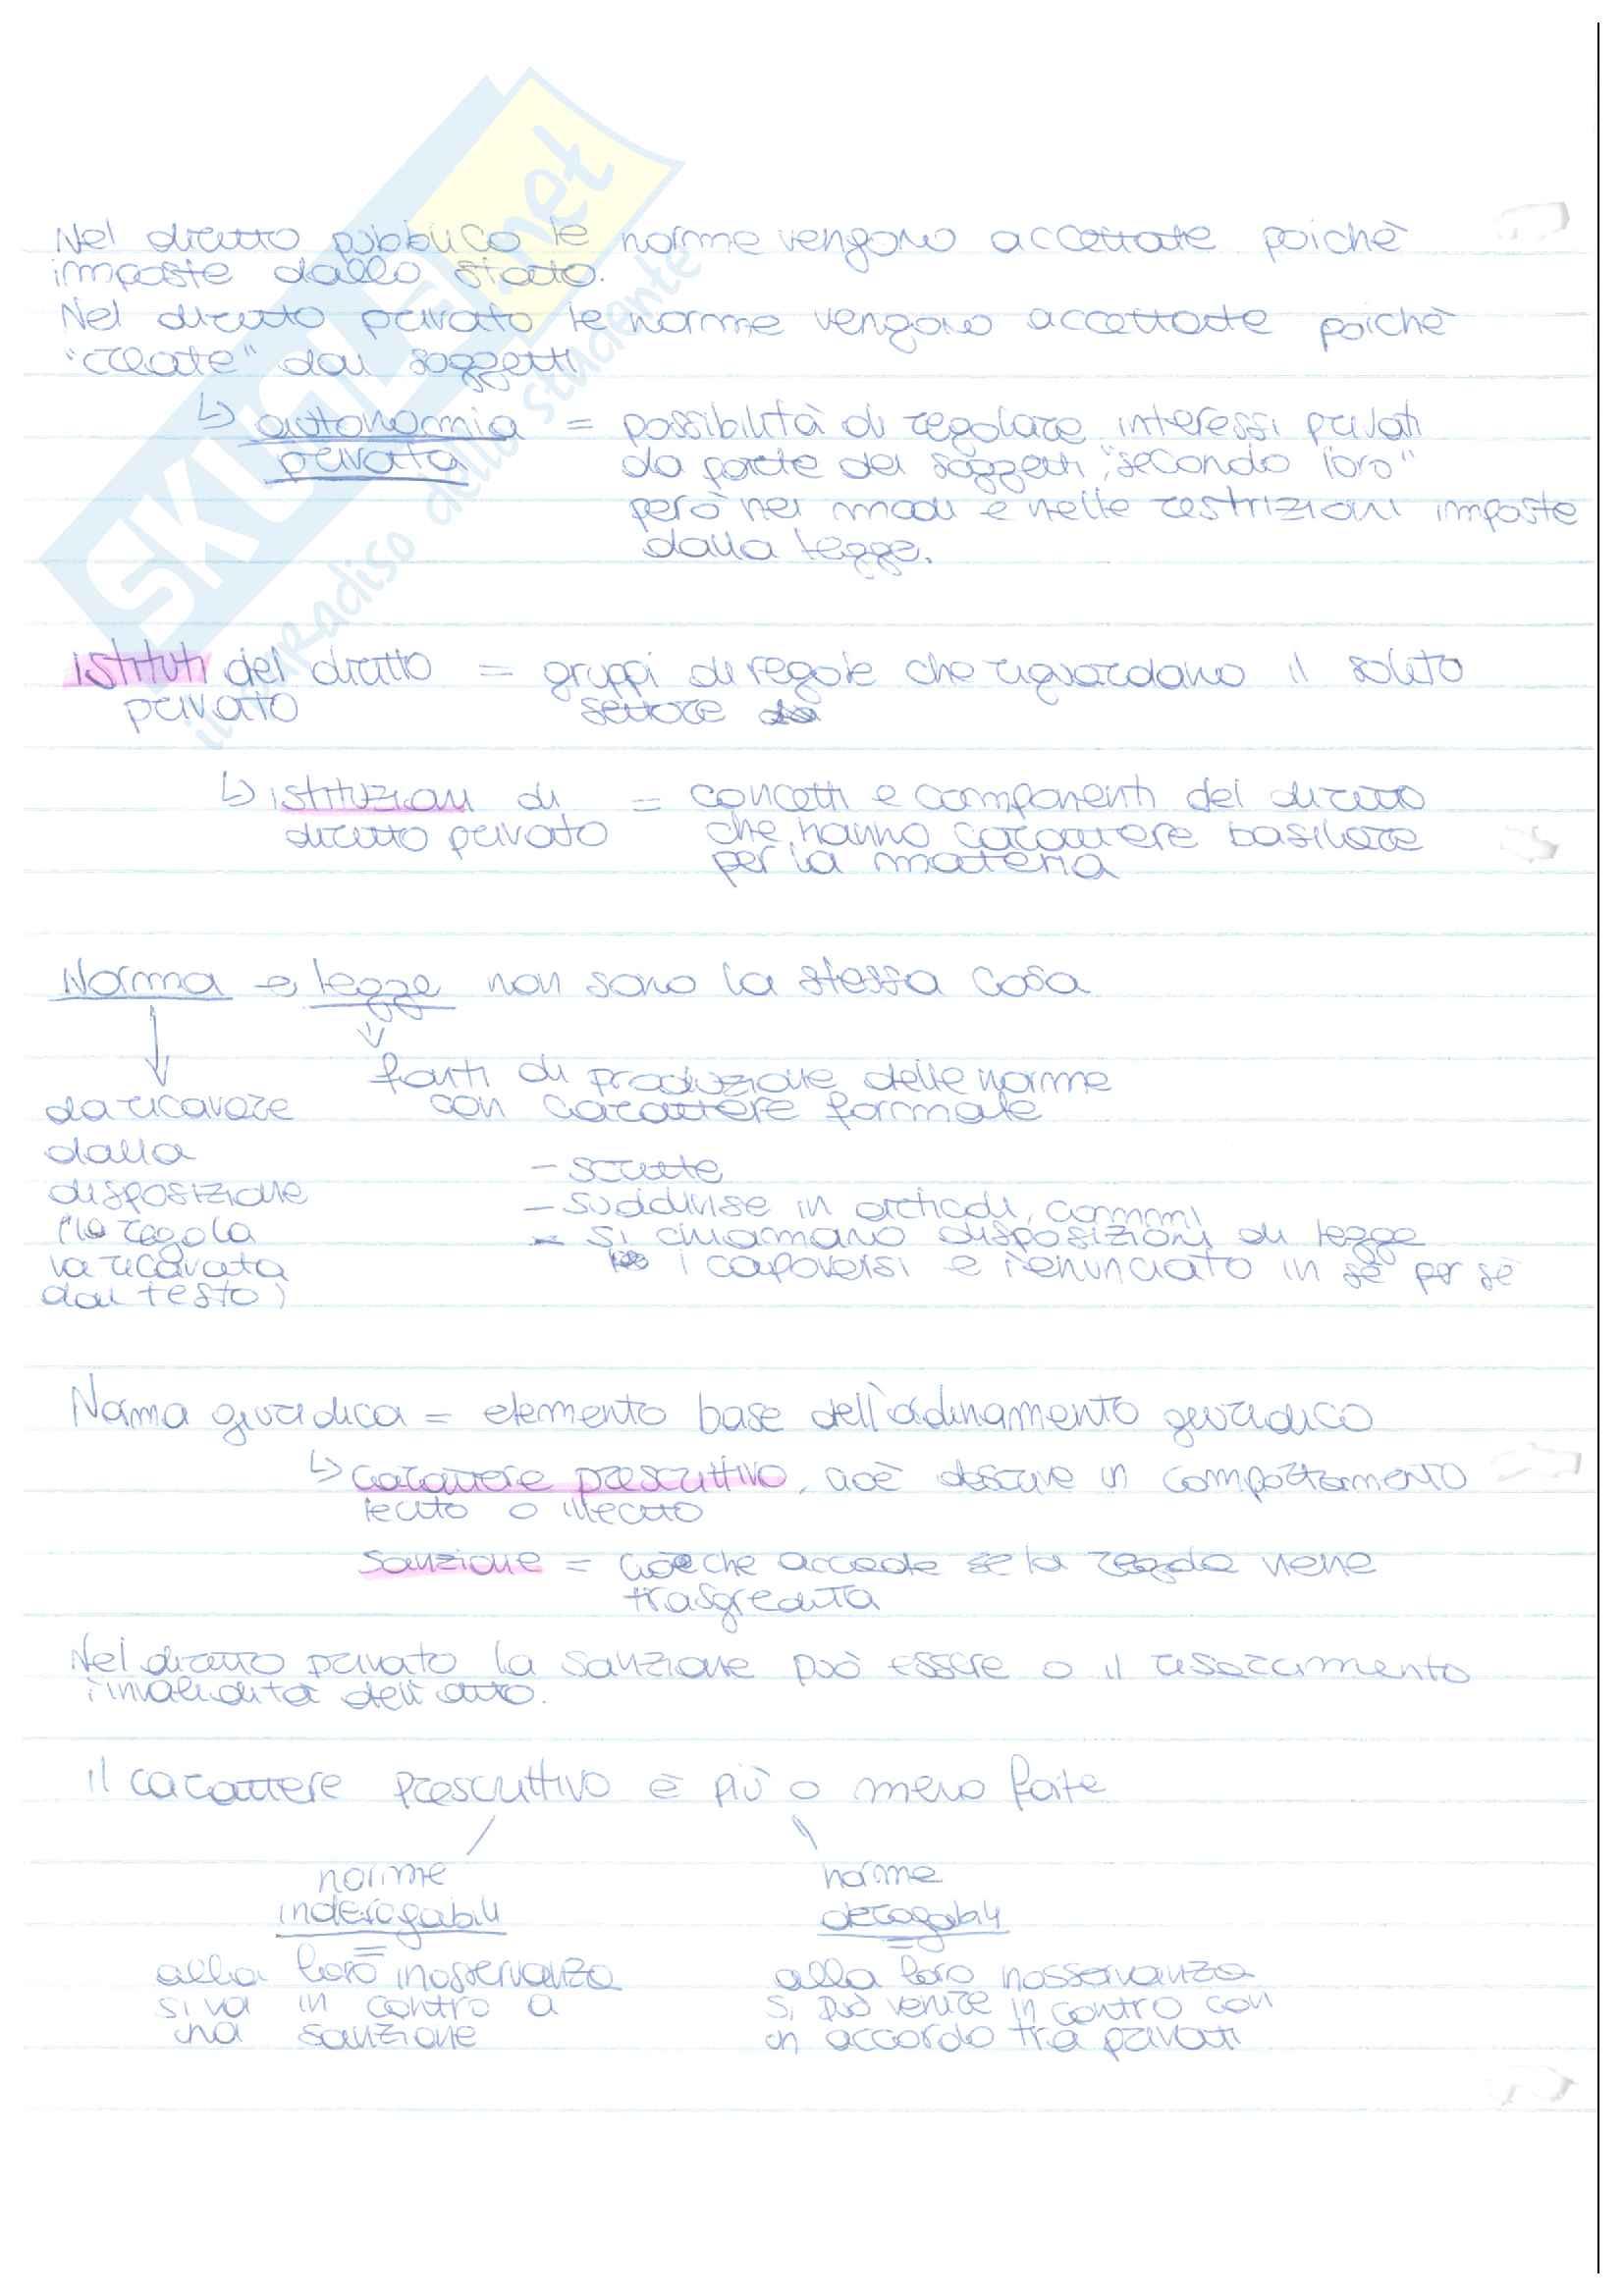 SKUOLA.net
il paradiso dello studente
Nel diritto pubblico le norme vengono accettate poichè
imposte dallo stato.
Nel diritto privato le norme vengono accettate poichè
"create" dai soggetti
↳ autonomia = possibilità di regolare interessi privati
privata da parte dei soggetti, "secondo loro"
però nei modi e nelle restrizioni imposte
dalla legge.
istituti del diritto = gruppi di regole che riguardano il solito
privato settore
↳ istituzioni di = concetti e componenti del diritto
diritto privato che hanno carattere basilare
per la materia
Norma e legge non sono la stessa cosa
fonti di produzione delle norme
con carattere formale
da ricavare
dalla
disposizione
(la regola
va ricavata
dal testo)
- scritte
- suddivise in articoli, commi
- si chiamano disposizioni di legge
i capoversi e l'enunciato in sè per sè
Norma giuridica = elemento base dell'ordinamento giuridico
↳ carattere prescrittivo, cioè descrive un comportamento
lecito o illecito
sanzione = cioè che accade se la regola viene
trasgredita
Nel diritto privato la sanzione può essere o il risarcimento
l'invalidità dell'atto.
il carattere prescrittivo è più o meno forte
norme norme
inderogabili derogabili
= =
alla loro inosservanza alla loro inosservanza
si va in contro a si può venire in contro con
una sanzione un accordo tra privati